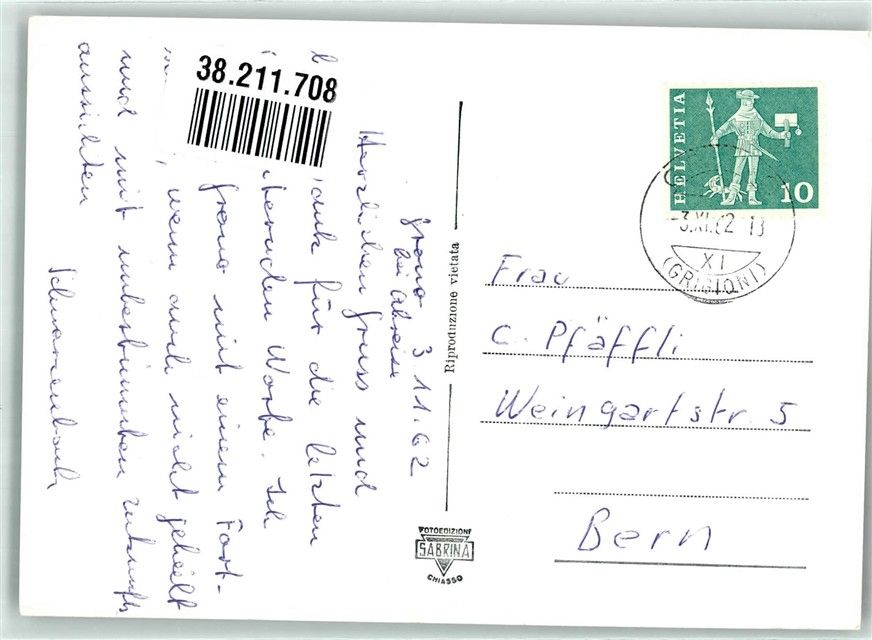 Grono 3.11.62
bei Abreise
Herzlichen Gruss und
Dank für die letzten
Worte. Ich
Grono mit einem Fort-
, wenn auch nicht geheilt
und mit unbestimmten Zukunfts
aussichten
38.211.708
Riproduzione vietata
FOTOEDIZIONI
SABRINA
CHIASSO
HELVETIA
10
-3.XI.62 -18
XI
(GRIGIONI)
Frau
C. Pfäffli
Weingartstr. 5
Bern